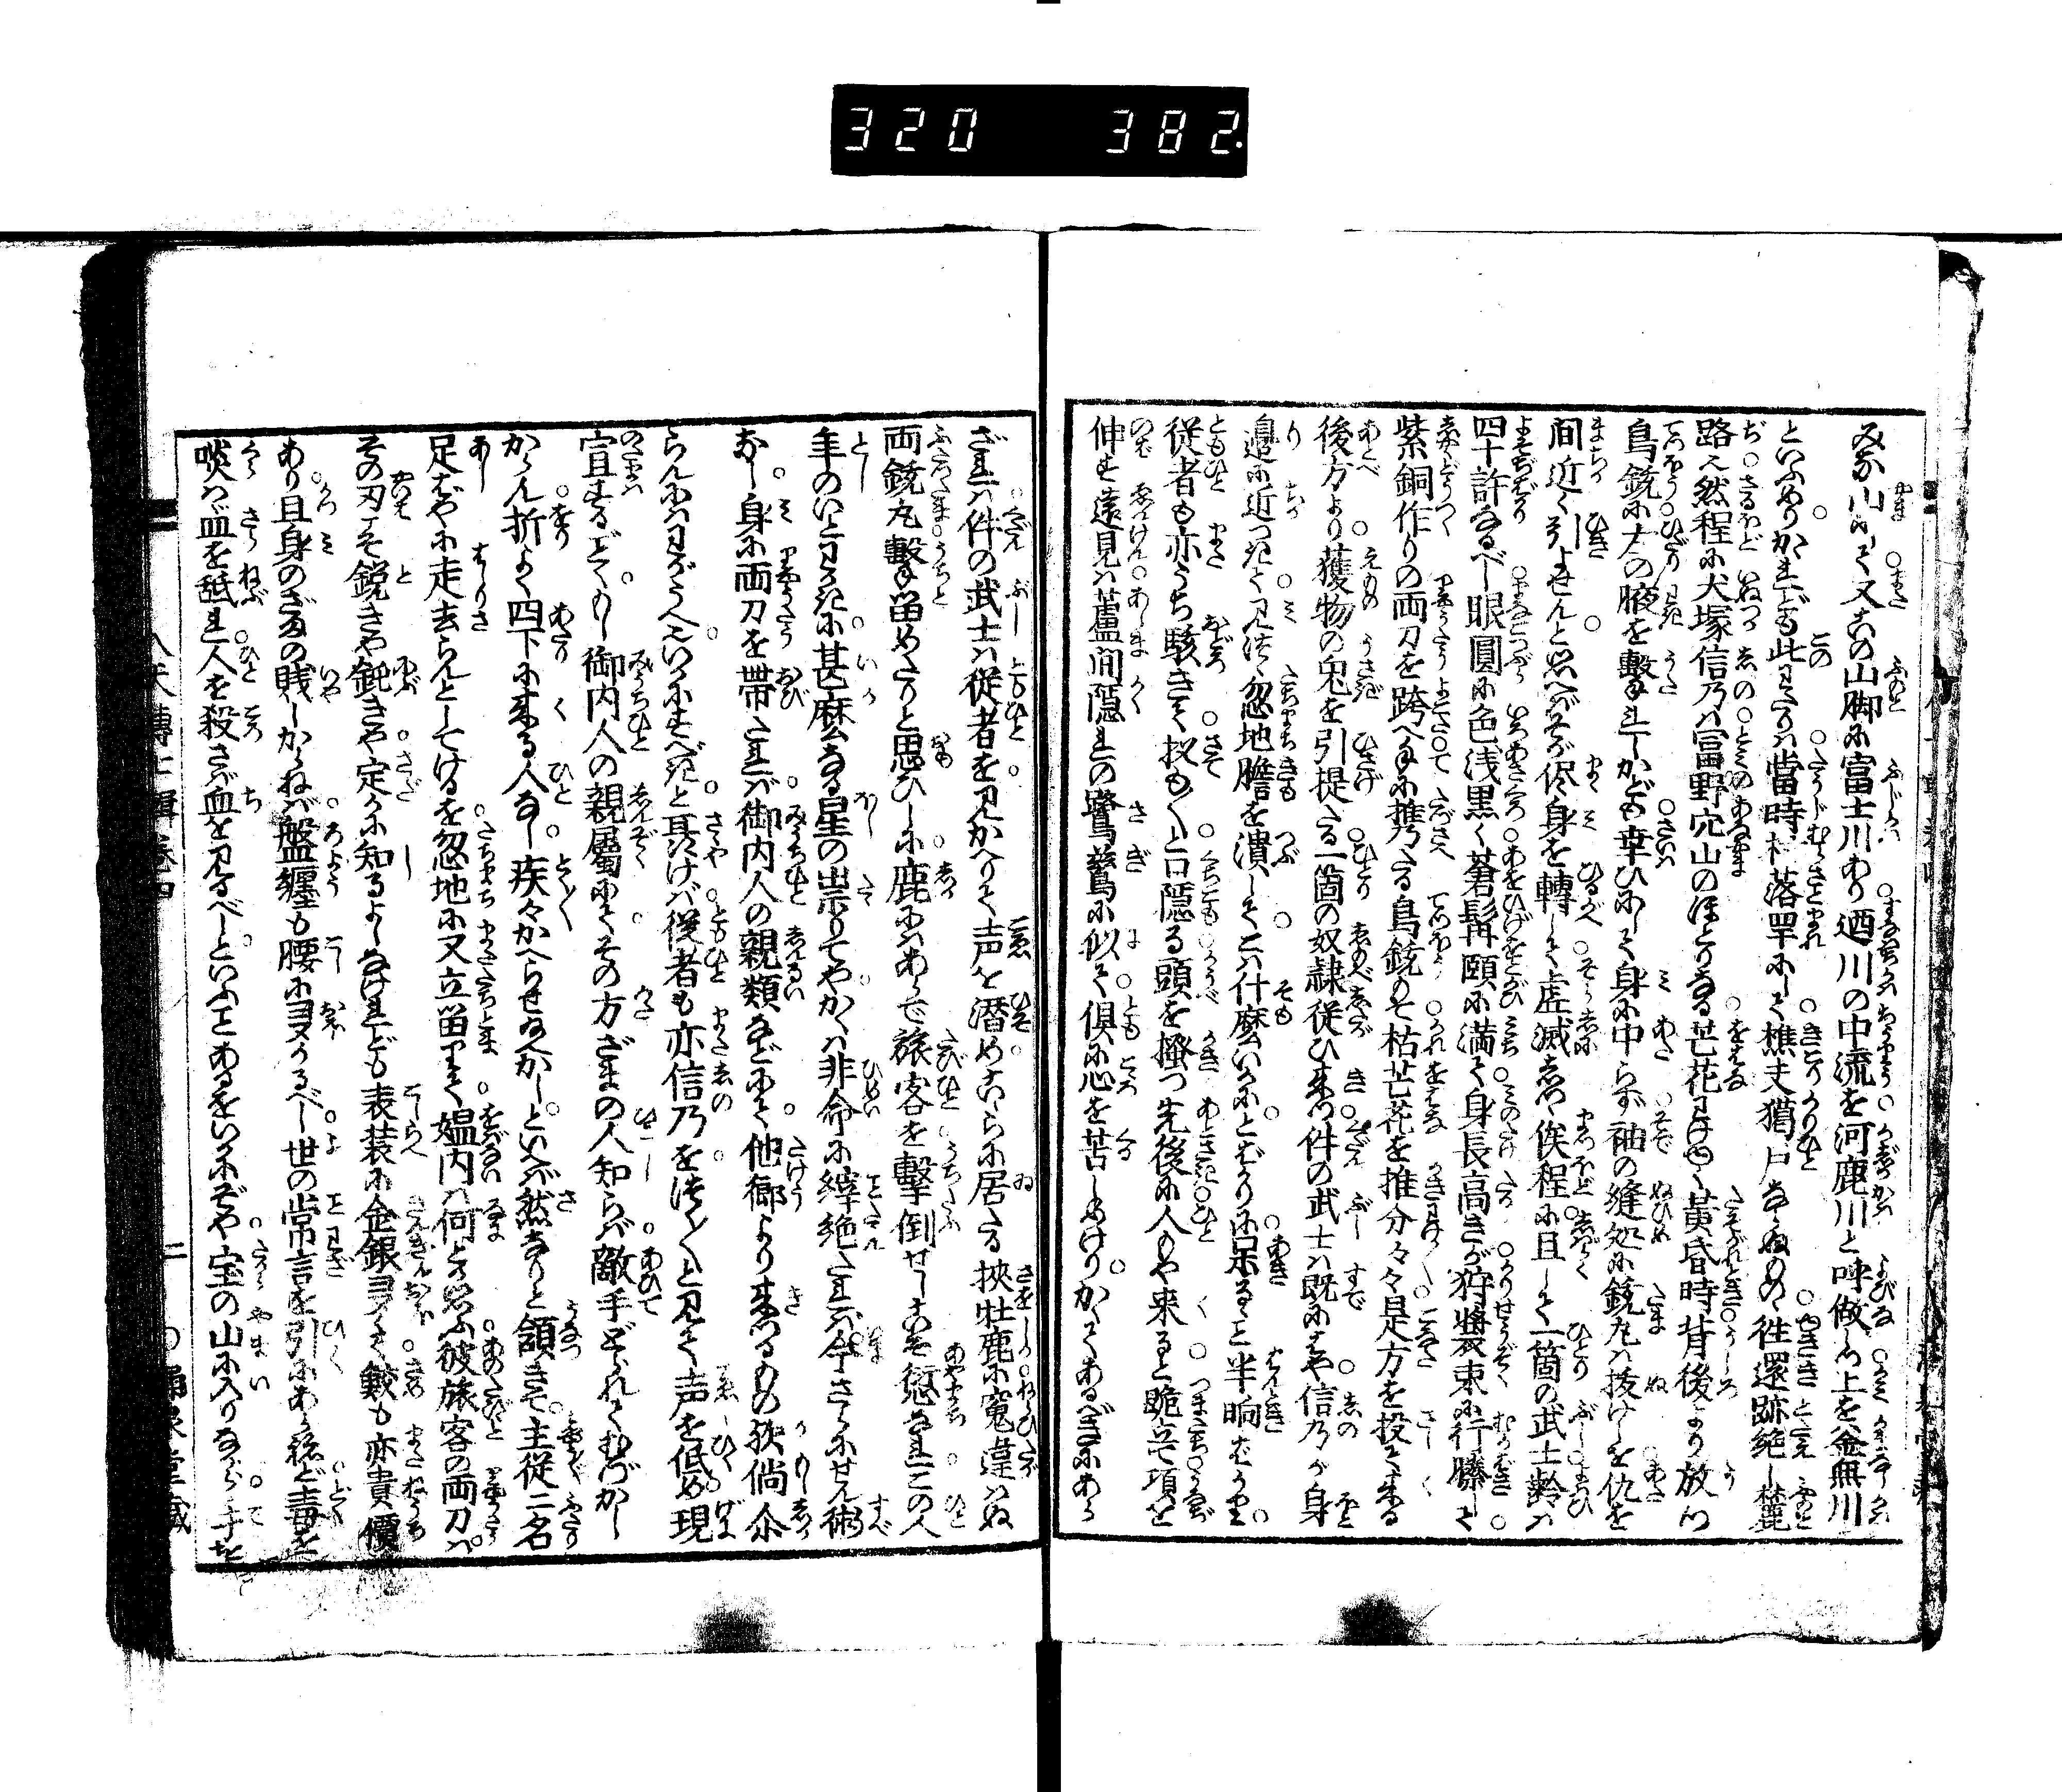 320 382.
みな山にて又この山脚に富士川あり迺川の中流を河鹿川と呼做し上を釜無川
といふめりかゝれども此わたりは當時村落罕にして樵夫獦戸ならぬものゝ徃還跡絶し麓
路え然程に犬塚信乃は富野穴山のほとりなる芒花わけゆく黄昏時背後より放つ
鳥銃に左の腋を撃れしかども幸ひにして身に中らず袖の縫処に銃丸は抜けしを仇を
間近く引よせんと思へばそが侭身を轉して虚滅しつゝ俟程に且して一箇の武士齢は
四十許なるべし眼圓に色浅黒く蒼髯頤に満て身長高きが狩装束に行縢して
紫銅作りの両刀を跨へ手に携たる鳥銃もて枯芒花を推分々々是方を投て来る
後方より獲物の兎を引提たる一箇の奴隷従ひ来つ件の武士は既にはや信乃が身
邉に近つきて見つゝ忽地膽を潰してこは什麼いかにとばかりに呆るゝこと半晌ばかり
従者も亦うち駭きて扨も〳〵と口隠る頭を掻つ先後に人もや来ると跪立て項を
伸して遠見は蘆間隠れの鷺鷥に似て倶に心を苦しめけりかくてあるべきにあら
ざれは件の武士は従者を見かへりて声を潜めこゝらに居たる挾牡鹿に寃違はぬ
両銃丸撃留めたりと思ひしに鹿にはあらで旅客を撃倒せしこそ愆なれこの人
年のいとわかきに甚麼なる星の祟りてやかくは非命に縡絶たれは今さらにせん術
なし身に両刀を帯たれば御内人の親類などにて他郷より来つるもの歟倘尒
らんにはわがうへえいかにすべきと耳語けば従者も亦信乃をつく〳〵と見て声を低め現
宣するごとくもし御内人の親屬にてその方ざまの人知らば敵手どられてむづかし
からん折よく四下に来る人なし疾々かへらせ給へかしといへば然なりと頷きて主従二名
足ばやに走去らんとしてけるを忽地に又立留りて媼内は何とか思ふ彼旅客の両刀は
その刃こそ鋭きや鈍きや定かに知るよしなけれども表装に金銀ヨクて鮫も亦貴價
あり且身のざまの賎しからねば盤纏も腰にヨクあるべし世の常言を引にあらねど毒を
啖はゞ皿を舐れ人を殺さば血を見るべしといふことあるをいかにぞや宝の山に入りながら手を